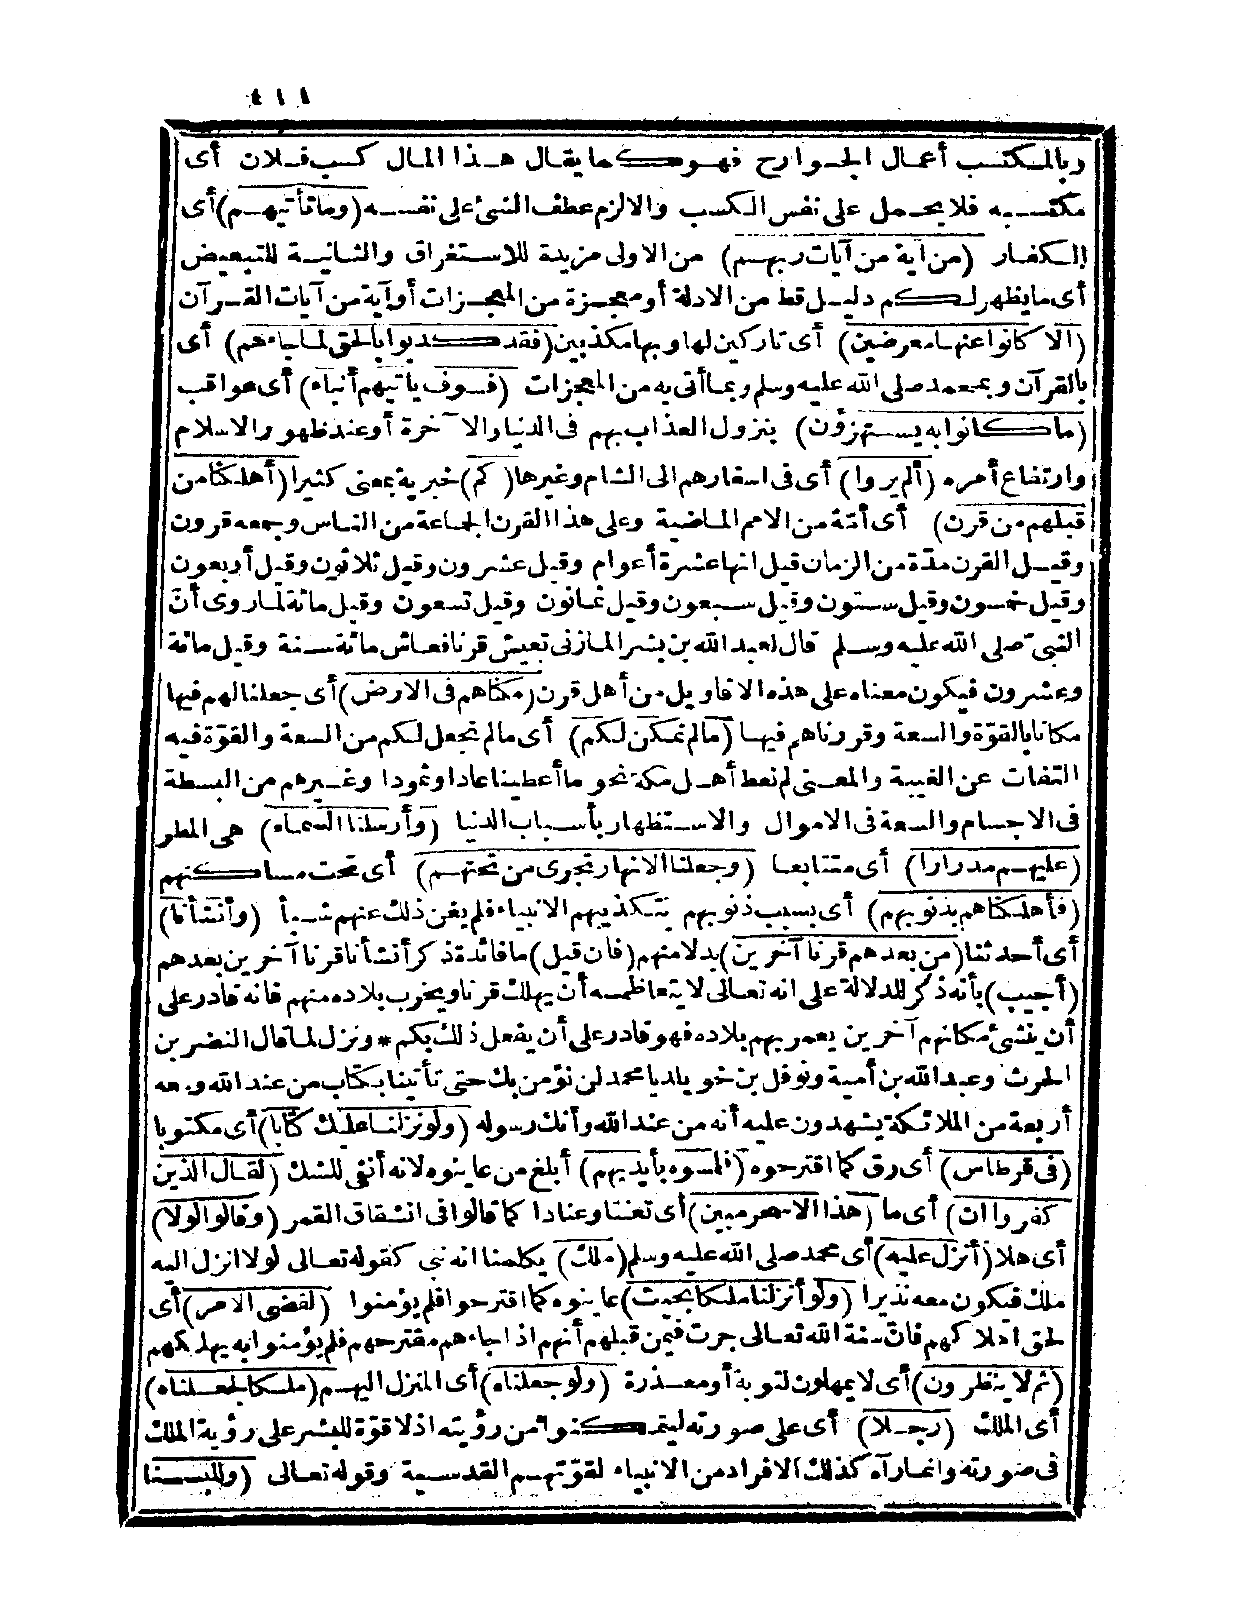 ٤١١
وبالمكتسب أعمال الجوارح فهو كما يقال هذا المال كسب فلان أى
مكتسبه فلا يحمل على نفس الكسب والالزم عطف الشئ على نفسه (وما تأتيهم) أى
الكفار (من آية من آيات ربهم) من الاولى مزيدة للاستغراق والثانية للتبعيض
أى ما يظهر لكم دليل قط من الادلة أو معجزة من المعجزات أو آية من آيات القرآن
(الا كانوا عنها معرضين) أى تاركين لها وبها مكذبين (فقد كذبوا بالحق لما جاءهم) أى
بالقرآن وبمحمد صلى الله عليه وسلم وبما أتى به من المعجزات (فسوف يأتيهم أنباء) أى عواقب
(ما كانوا به يستهزؤن) بنزول العذاب بهم فى الدنيا والآخرة أو عند ظهور الاسلام
وارتفاع أمره (ألم يروا) أى فى اسفارهم الى الشام وغيرها (كم) خبرية بمعنى كثيرا (أهلكنا من
قبلهم من قرن) أى أمّة من الامم الماضية وعلى هذا القرن الجماعة من الناس وجمعه قرون
وقيل القرن مدّة من الزمان قيل انها عشرة أعوام وقيل عشرون وقيل ثلاثون وقيل أربعون
وقيل خمسون وقيل ستون وقيل سبعون وقيل ثمانون وقيل تسعون وقيل مائة لما روى أنّ
النبىّ صلى الله عليه وسلم قال لعبد الله بن بشر المازنى تعيش قرنا فعاش مائة سنة وقيل مائة
وعشرون فيكون معناه على هذه الاقاويل من أهل قرن (مكناهم فى الارض) أى جعلنا لهم فيها
مكانا بالقوّة والسعة وقررناهم فيها (ما لم نمكن لكم) أى ما لم نجعل لكم من السعة والقوّة فيه
التفات عن الغيبة والمعنى لم نعط أهل مكة نحو ما أعطينا عادا وثمودا وغيرهم من البسطة
فى الاجسام والسعة فى الاموال والاستظهار بأسباب الدنيا (وأرسلنا السماء) هى المطر
(عليهم مدرارا) أى متتابعا (وجعلنا الانهار تجرى من تحتهم) أى تحت مساكنهم
(فأهلكناهم بذنوبهم) أى بسبب ذنوبهم بتكذيبهم الانبياء فلم يغن ذلك عنهم شيأ (وأنشأنا)
أى أحدثنا (من بعدهم قرنا آخرين) بدلا منهم (فان قيل) ما فائدة ذكر أنشأنا قرنا آخرين بعدهم
(أجيب) بأنه ذكر للدلالة على انه تعالى لا يتعاظمه أن يهلك قرنا ويخرب بلاده منهم فانه قادر على
أن ينشئ مكانهم آخرين يعمر بهم بلاده فهو قادر على أن يفعل ذلك بكم * ونزل لما قال النضر بن
الحرث وعبد الله بن أمية ونوفل بن خويلد يا محمد لن نؤمن بك حتى تأتينا بكتاب من عند الله ومعه
أربعة من الملائكة يشهدون عليه أنه من عند الله وأنك رسوله (ولو نزلنا عليك كتابا) أى مكتوبا
(فى قرطاس) أى رق كما اقترحوه (فلمسوه بأيديهم) أبلغ من عاينوه لانه أنفى للشك (لقال الذين
كفروا ان) أى ما (هذا الا سحر مبين) أى تعنتا وعنادا كما قالوا فى انشقاق القمر (وقالوا لولا)
أى هلا (أنزل عليه) أى محمد صلى الله عليه وسلم (ملك) يكلمنا انه نبى كقوله تعالى لولا انزل اليه
ملك فيكون معه نذيرا (ولو أنزلنا ملكا) بحيث عاينوه كما اقترحوا فلم يؤمنوا (لقضى الامر) أى
لحق اهلاكهم فانّ سنة الله تعالى جرت فيمن قبلهم أنهم اذا جاءهم مقترحهم فلم يؤمنوا به يهلكهم
(ثم لا ينظرون) أى لا يمهلون لتوبة أو معذرة (ولو جعلناه) أى المنزل اليهم (ملكا لجعلناه)
أى الملك (رجلا) أى على صورته ليتمكنوا من رؤيته اذ لا قوّة للبشر على رؤية الملك
فى صورته وانما رآه كذلك الافراد من الانبياء لقوّتهم القدسية وقوله تعالى (وللبسنا